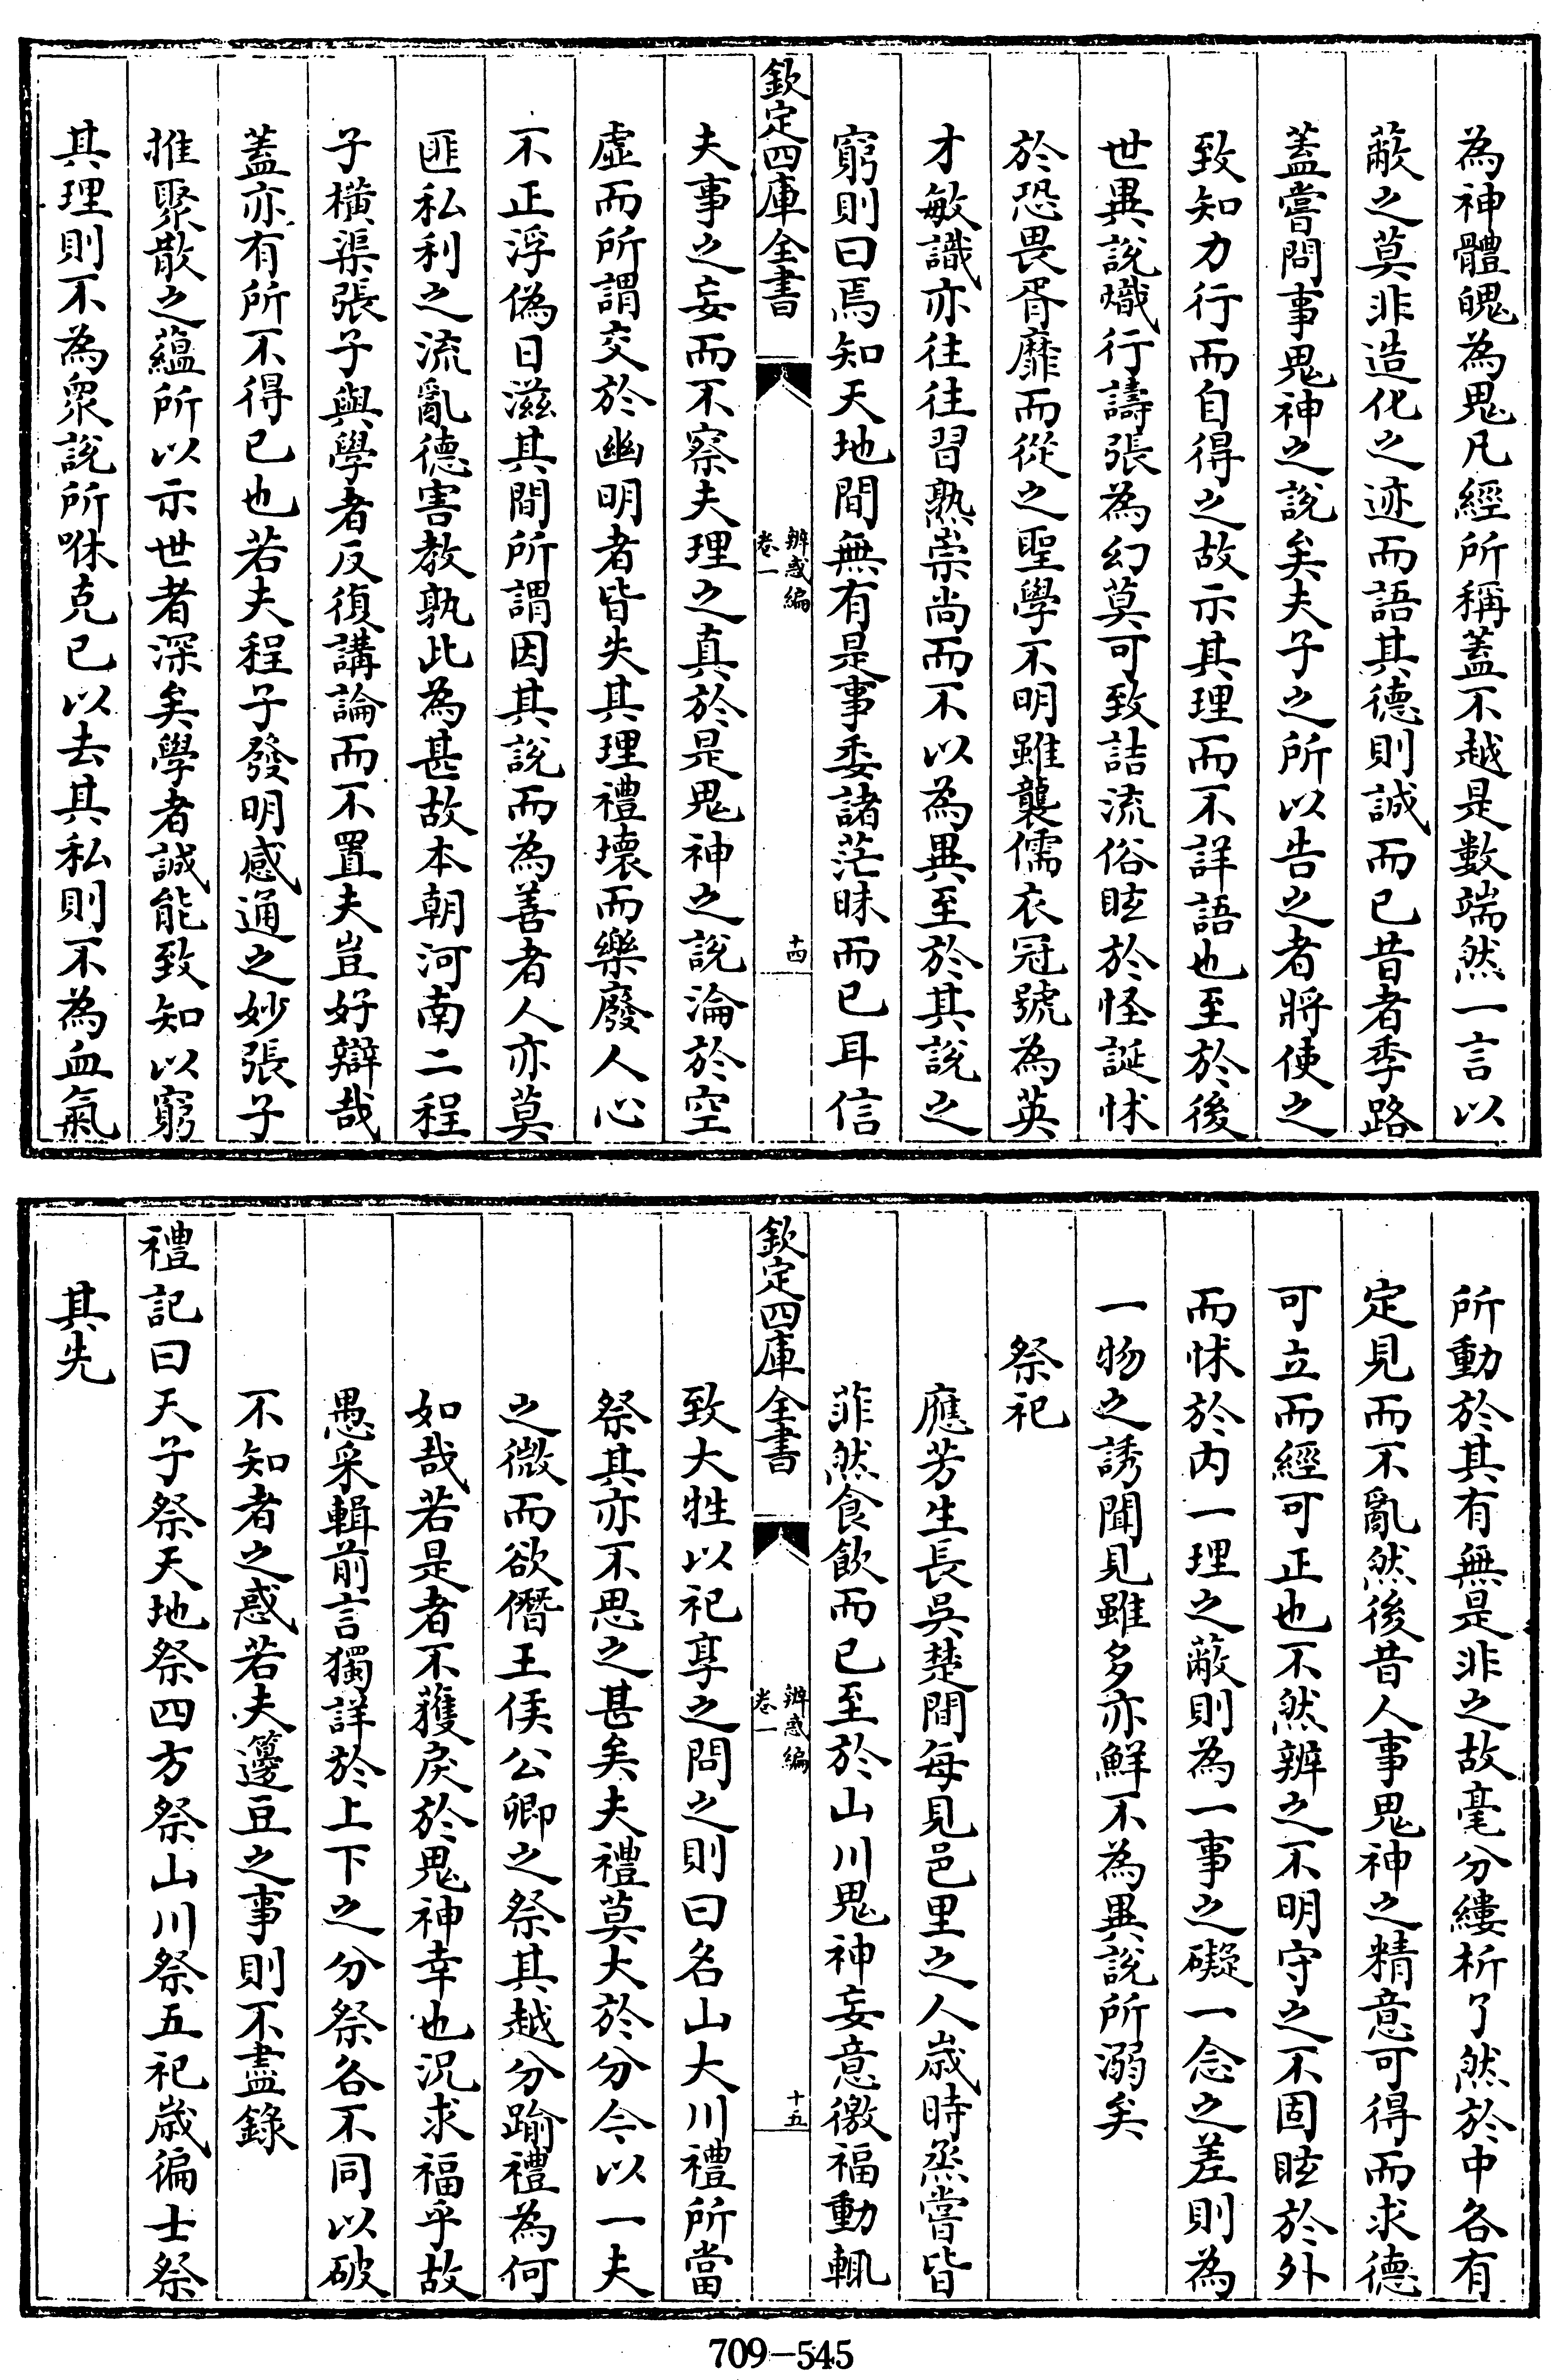 為神體魄為鬼凡經所稱蓋不越是數端然一言以
蔽之莫非造化之迹而語其德則誠而已昔者季路
蓋嘗問事鬼神之說矣夫子之所以告之者將使之
致知力行而自得之故示其理而不詳語也至於後
世異說熾行譸張為幻莫可致詰流俗眩於怪誕怵
於恐畏胥靡而從之聖學不明雖襲儒衣冠號為英
才敏識亦往往習熟崇尚而不以為異至於其說之
窮則曰焉知天地間無有是事委諸茫昧而已耳信
欽定四庫全書
辨惑編
卷一
十四
夫事之妄而不察夫理之真於是鬼神之說淪於空
虛而所謂交於幽明者皆失其理禮壞而樂廢人心
不正浮偽日滋其間所謂因其說而為善者人亦莫
匪私利之流亂德害教孰此為甚故本朝河南二程
子橫渠張子與學者反復講論而不置夫豈好辯哉
蓋亦有所不得已也若夫程子發明感通之妙張子
推聚散之蘊所以示世者深矣學者誠能致知以窮
其理則不為衆說所咻克已以去其私則不為血氣
所動於其有無是非之故毫分縷析了然於中各有
定見而不亂然後昔人事鬼神之精意可得而求德
可立而經可正也不然辨之不明守之不固眩於外
而怵於内一理之蔽則為一事之礙一念之差則為
一物之誘聞見雖多亦鮮不為異說所溺矣
祭祀
應芳生長吳楚間每見邑里之人歲時烝嘗皆
菲然食飲而已至於山川鬼神妄意徼福動輒
欽定四庫全書
辨惑編
卷一
十五
致大牲以祀享之問之則曰名山大川禮所當
祭其亦不思之甚矣夫禮莫大於分今以一夫
之微而欲僭王侯公卿之祭其越分踰禮為何
如哉若是者不獲戾於鬼神幸也況求福乎故
愚采輯前言獨詳於上下之分祭各不同以破
不知者之惑若夫籩豆之事則不盡錄
禮記曰天子祭天地祭四方祭山川祭五祀歲徧士祭
其先
709-545